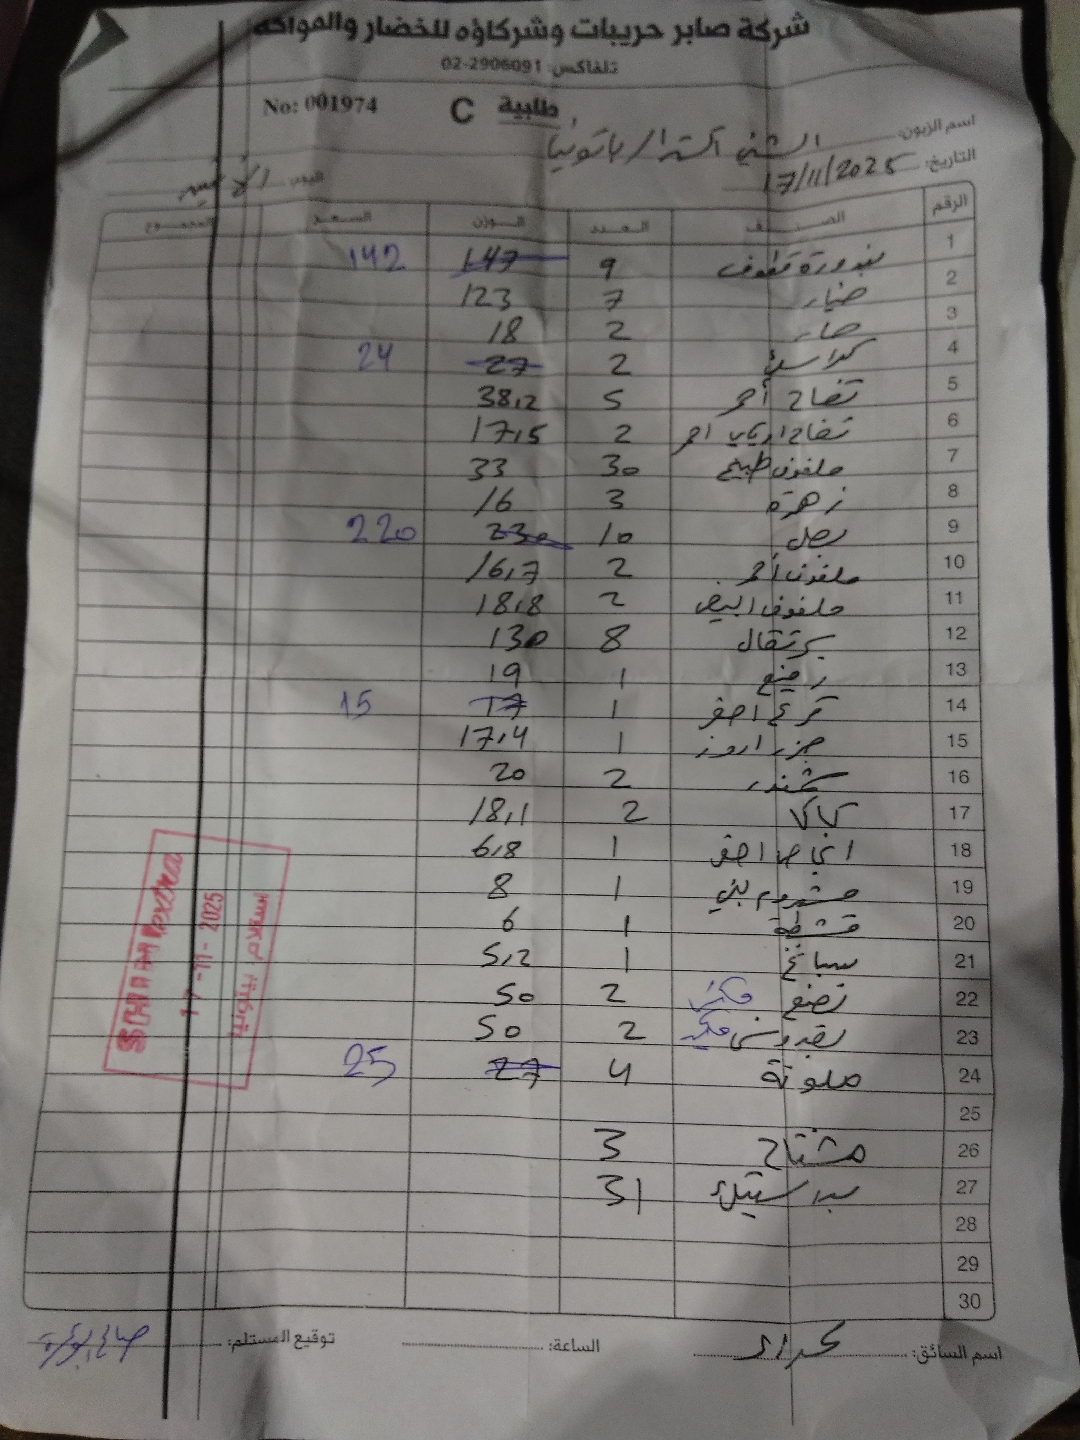 شركة صابر حريبات وشركاؤه للخضار والفواكه
تلفاكس: 02-2906091
No: 001974 C طلبية
اسم الزبون: الشني اكسترا
التاريخ: 17/11/2025 اليوم: الاثنين
الرقم الصنف العدد الوزن السعر المجموع
1 بندورة قطوف 9 147 142
2 خيار 7 123
3 حار 2 18
4 كلاسيك 2 27 24
5 تفاح أحمر 5 38,2
6 تفاح احمر 2 17,5
7 ملفوف طبيخ 30 33
8 زهرة 3 16
9 بصل 10 230 220
10 ملفوف أحمر 2 16,7
11 ملفوف ابيض 2 18,8
12 برتقال 8 130
13 1 19
14 قرع اصفر 1 17 15
15 جزر 1 17,4
16 شمندر 2 20
17 كاكا 2 18,1
18 انجاص اصفر 1 6,8
19 مشروم بني 1 8
20 قشطة 1 6
21 سبانخ 1 5,2
22 نعنع 2 50
23 بقدونس 2 50
24 ملونة 4 27 25
25
26 مشتاح 3
27 31
28
29
30
17-11-2025
اسم السائق: الساعة: توقيع المستلم: